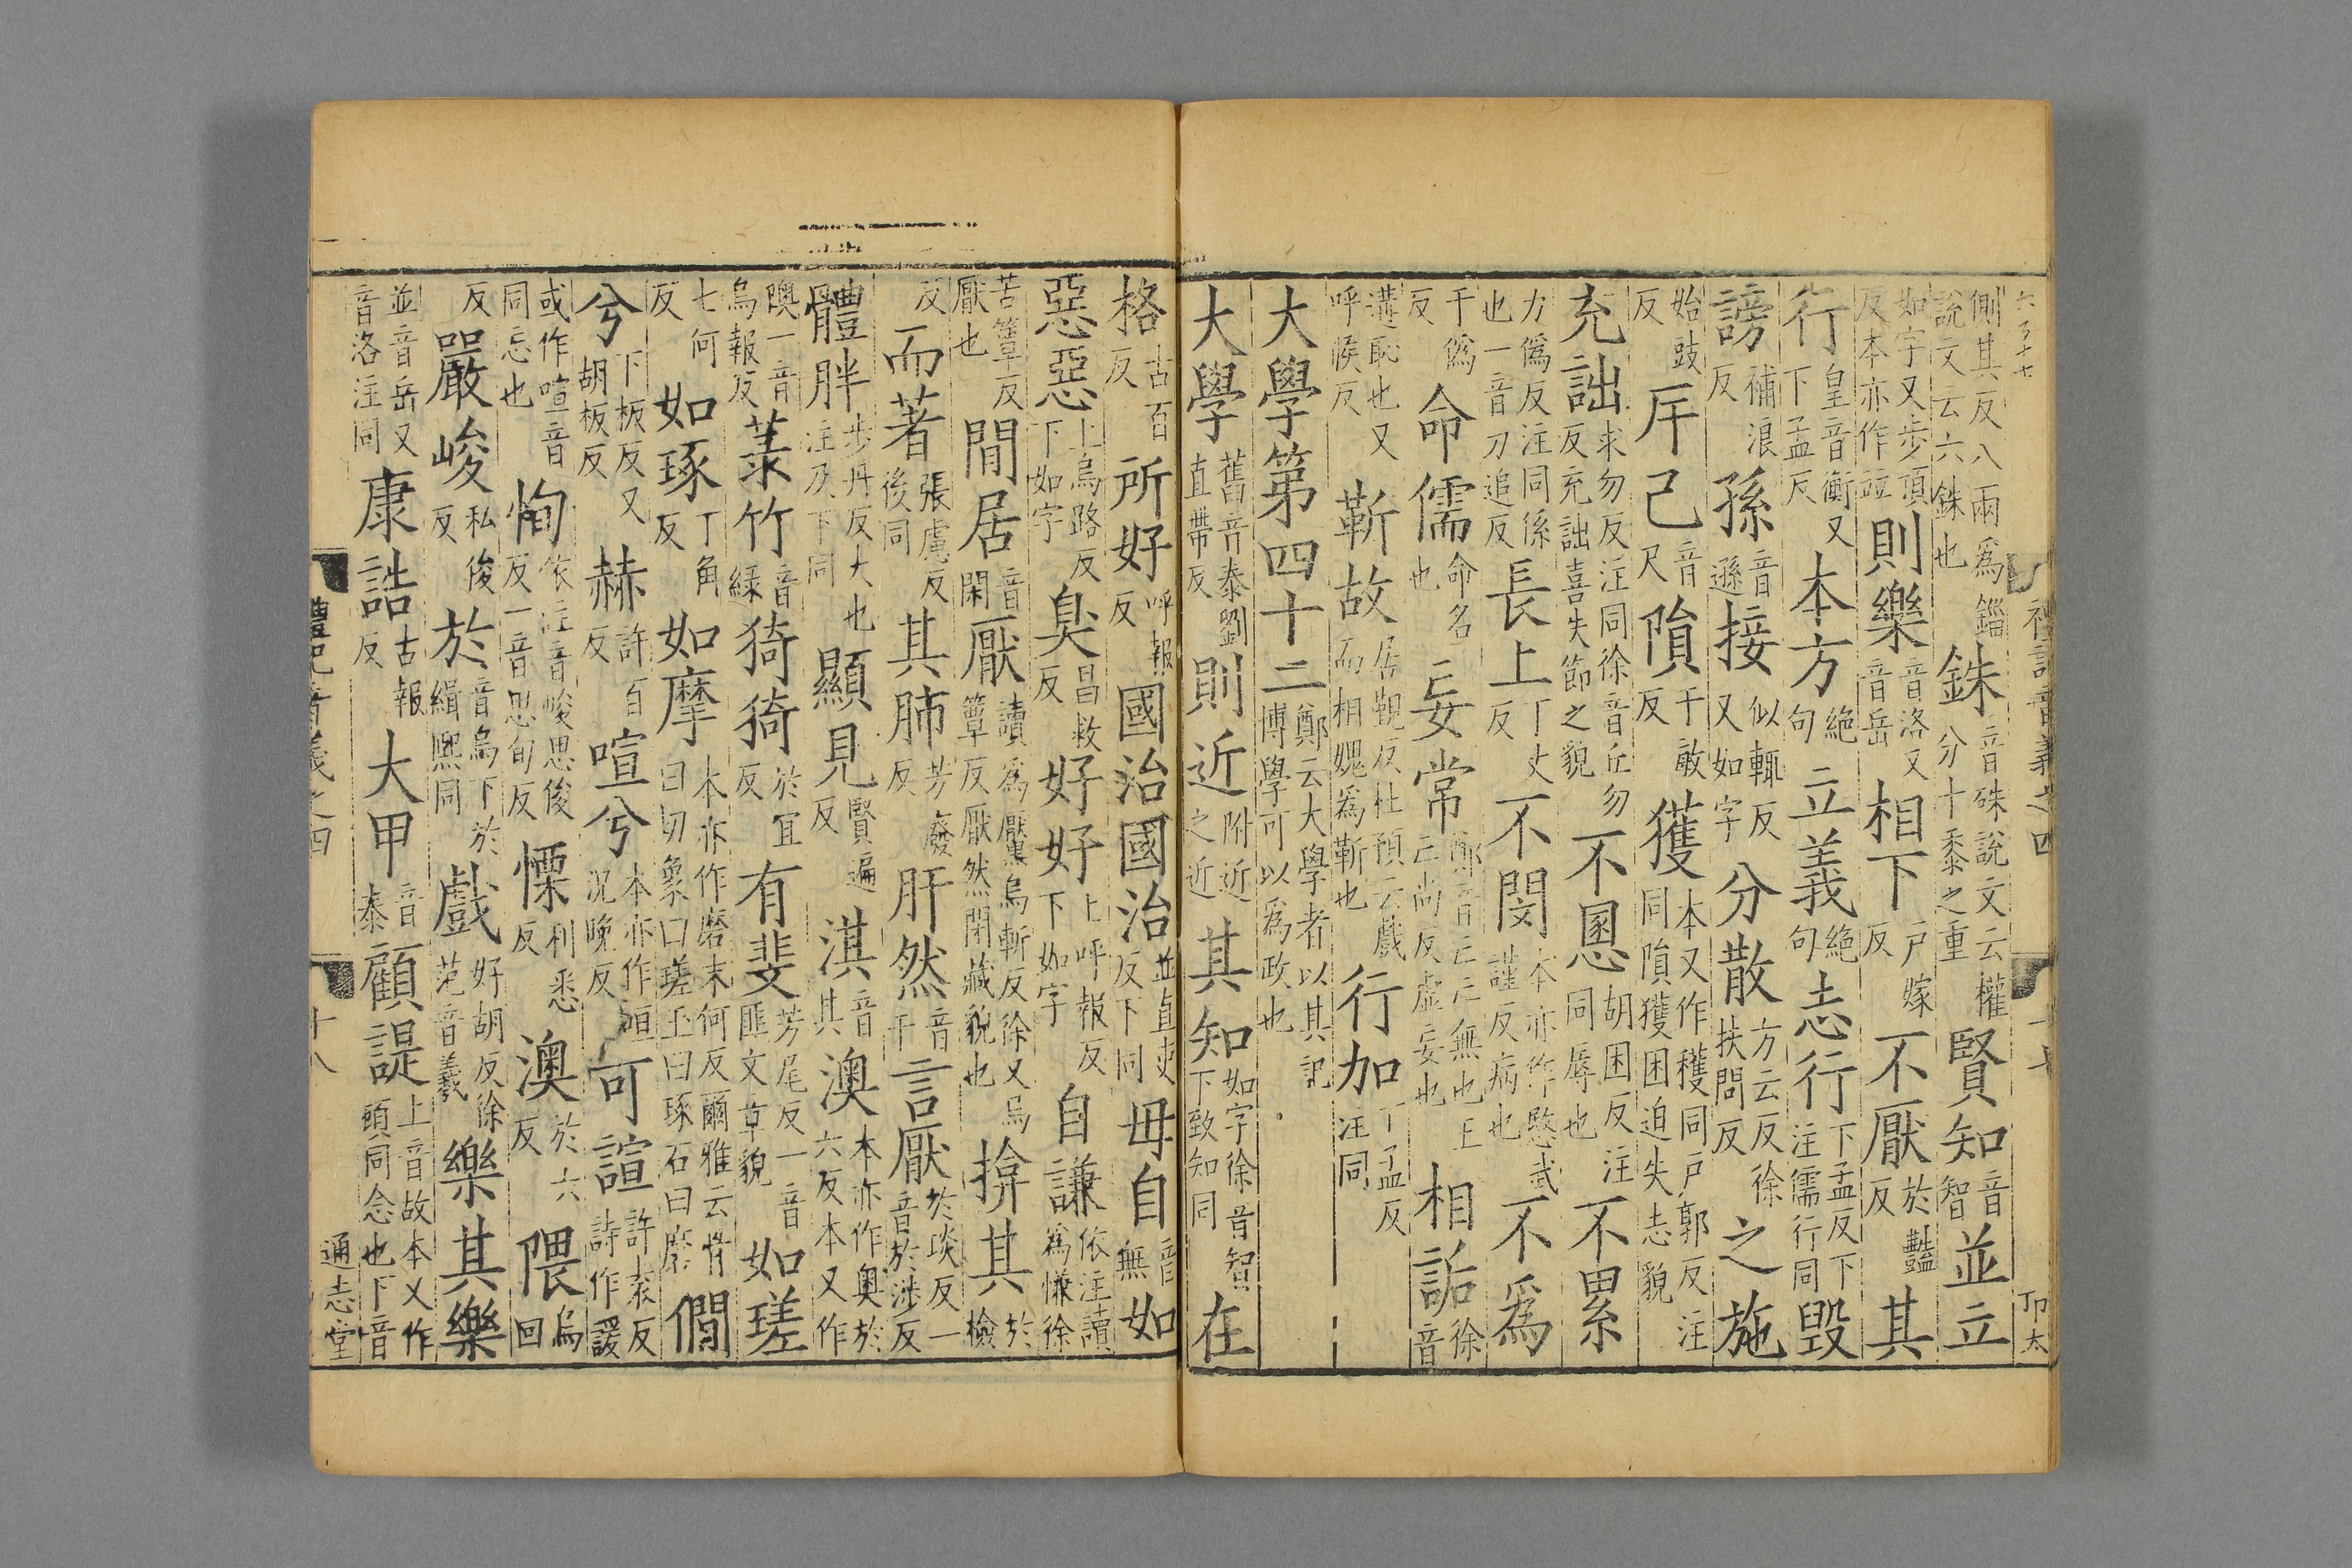 六百十七
禮記音義之四
十七
卬太
側其反八兩爲錙說文云六銖也銖音殊說文云權分十黍之重賢知音智並立
如字又步頂反本亦作竝則樂音洛又音岳相下戶嫁反不厭於豔反其
行皇音衡又下孟反本方絶句立義絶句志行下孟反下注儒行同毀
謗補浪反孫音遜接似輒反又如字分散方云反徐扶問反之施
始豉反斥己音尺隕于敏反獲本又作穫同戶郭反注同隕獲困迫失志貌
充詘求勿反注同徐音丘勿反充詘喜失節之貌不慁胡困反注同辱也不累
力僞反注同係也一音刀追反長上丁丈反不閔本亦作愍武謹反病也不爲
于僞反命儒命名也妄常鄭音亡亡無也王亡尚反虛妄也相詬徐音
遘恥也又呼候反靳故居覲反杜預云戲而相媿爲靳也行加下孟反注同
大學第四十二鄭云大學者以其記博學可以爲政也
大學舊音泰劉直帶反則近附近之近其知如字徐音智下致知同在
格古百反所好呼報反國治國治並直吏反下同毋自音無如
惡惡上烏路反下如字臭昌救反好好上呼報反下如字自謙依注讀爲慊徐
苦簟反厭也閒居音閑厭讀爲黶烏斬反徐又烏簟反厭然閉藏貌也揜其於檢
反而著張慮反後同其肺芳廢反肝然音干言厭於琰反一音於涉反
體胖步丹反大也注及下同顯見賢遍反淇音其澳本亦作奧於六反本又作
隩一音烏報反菉竹音綠猗猗於宜反有斐芳尾反一音匪文章貌如瑳
七何反如琢丁角反如摩本亦作磨末何反爾雅云骨曰切象曰瑳玉曰琢石曰磨僩
下板反又胡板反兮赫許百反喧兮本亦作咺況晚反可諠許袁反詩作諼
或作喧音同忘也恂依注音峻思俊反一音思旬反慄利悉反澳於六反隈烏回
反嚴峻私俊反於音烏下於緝熙同戲好胡反徐范音羲樂其樂
並音岳又音洛注同康誥古報反大甲音泰顧諟上音故本又作頋同念也下音
禮記音義之四
十八
通志堂